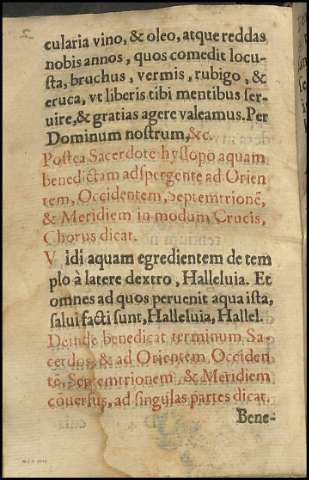 cularia vino, & oleo, atque reddas
nobis annos, quos comedit locu-
sta, bruchus, vermis, rubigo, &
eruca, vt liberis tibi mentibus ser-
uire, & gratias agere valeamus. Per
Dominum nostrum, &c.
Postea Sacerdote hyssopo aquam
benedictam adspergente ad Orien
tem, Occidentem, Septemtrionẽ,
& Meridiem in modum Crucis,
Chorus dicat.
Vidi aquam egredientem de tem
plo à latere dextro, Halleluia. Et
omnes ad quos peruenit aqua ista,
salui facti sunt, Halleluia, Hallel.
Deinde benedicat terminum Sa-
cerdos, & ad Orientem, Occiden
tẽ, Septemtrionem & Meridiem
cõuersus, ad singulas partes dicat.
Bene-